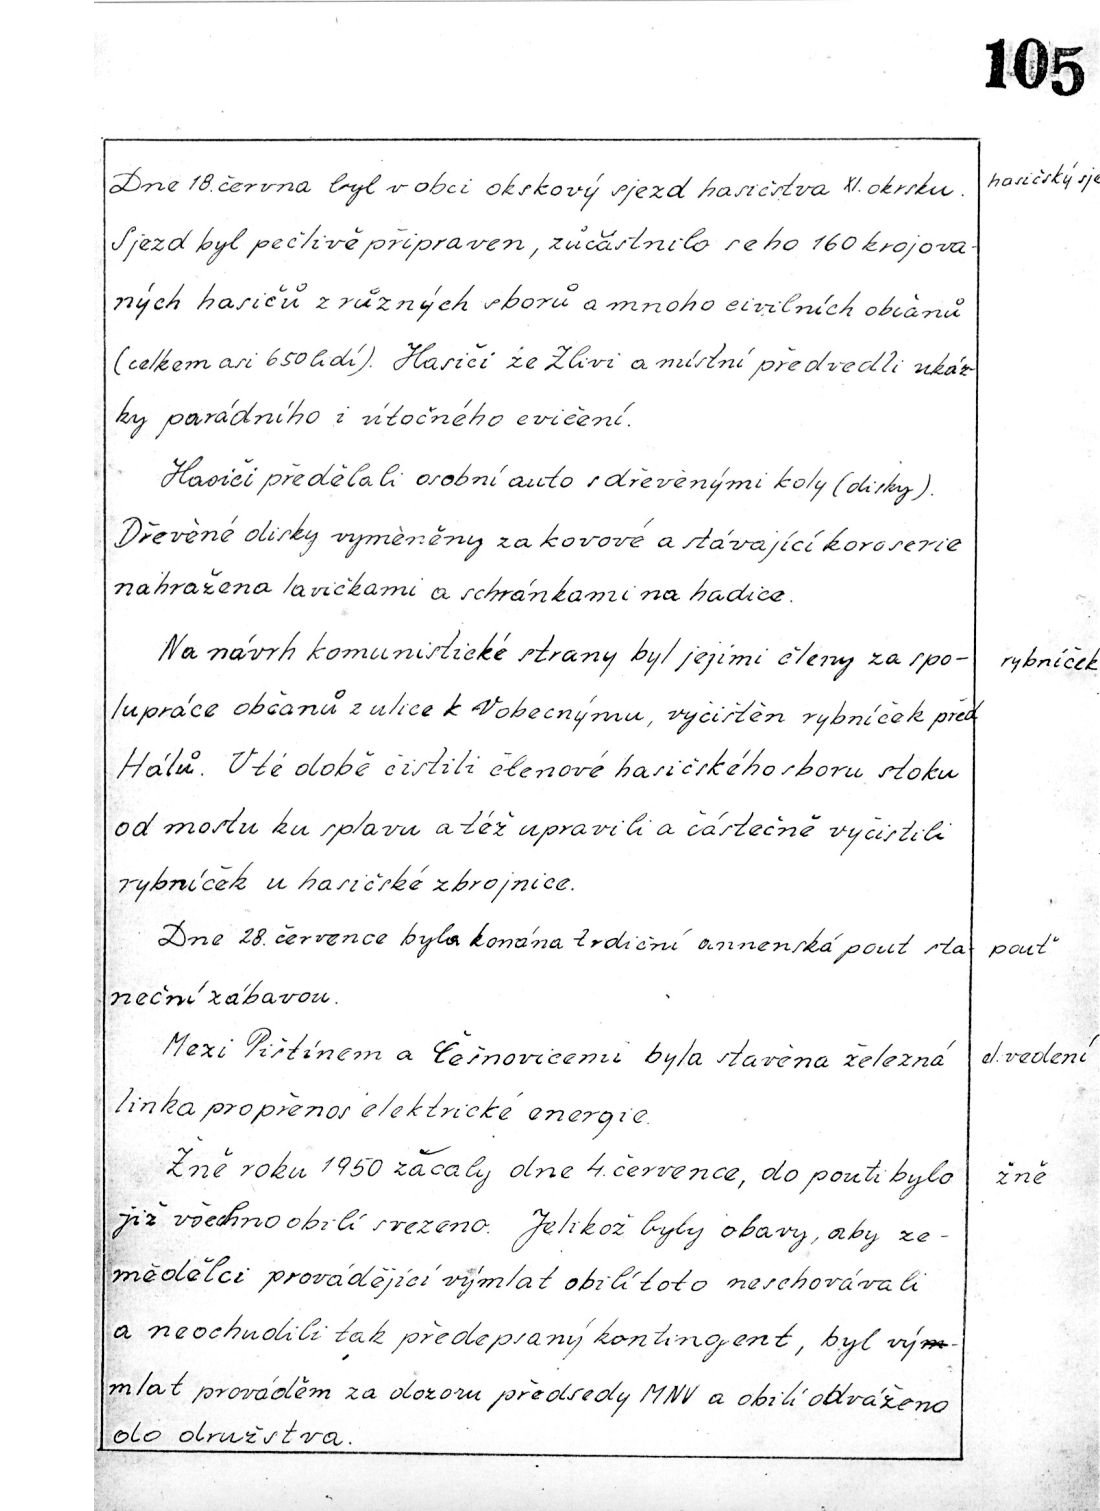 105
Dne 18. června byl v obci okskový sjezd hasičstva XI. okrsku.
hasičský sje
Sjezd byl pečlivě připraven, zůčástnilo se ho 160 krojova-
ných hasičů z různých sborů a mnoho civilních občanů
(celkem asi 650 lidí). Hasiči ze Zlivi a místní předvedli ukáz-
ky parádního i útočného cvičení.
Hasiči předělali osobní auto s dřevěnými koly (disky).
Dřevěné disky vyměněny za kovové a stávající koroserie
nahražena lavičkami a schránkami na hadice.
Na návrh komunistické strany byl jejími členy za spo-
rybníček
lupráce občanů z ulice k Vobecnýmu, vyčištěn rybníček před
Hálů. V té době čistili členové hasičského sboru stoku
od mostu ku splavu a též upravili a částečně vyčistili
rybníček u hasičské zbrojnice.
Dne 28. července byla konána trdiční annenská pouť s ta-
pouť
neční zábavou.
Mezi Pištínem a Češnovicemi byla stavěna železná
el. vedení
linka pro přenos elektrické energie.
Žně roku 1950 začaly dne 4. července, do pouti bylo
žně
již všechno obilí svezeno. Jelikož byly obavy, aby ze-
mědělci provádějící výmlat obilí toto neschovávali
a neochudili tak předepsaný kontingent, byl vým-
mlat prováděm za dozoru předsedy MNV a obilí odváženo
do družstva.